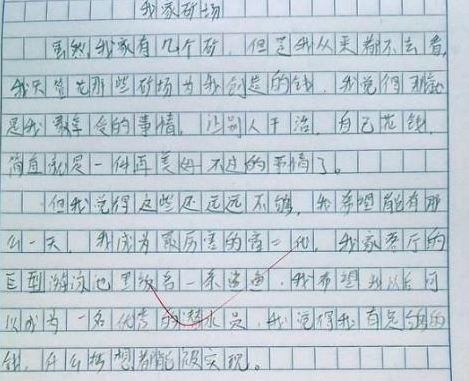 我家矿场
虽然,我家有几个矿,但是我从来都不去看,
我只管花那些矿场为我创造的钱,我觉得那就
是我最享受的事情,让别人干活,自己花钱,
简直就是一件再美好不过的事情了。
但我觉得这些还远远不够,我希望能有那
么一天,我成为最厉害的富二代,我家客厅的
巨型游泳池里养着一条鲨鱼,我希望我以后可
以成为一名优秀的潜水员,我觉得我有足够的
钱,什么梦想都能被实现。